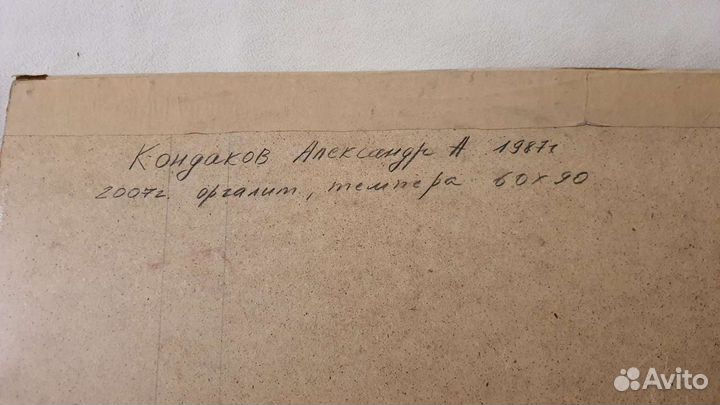 Кондаков Александр А 1987г
2007г. оргалит, темпера 60×90
Avito